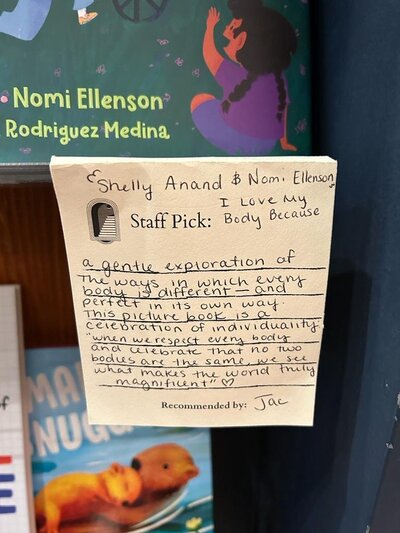 Nomi Ellenson
Rodriguez Medina
Shelly Anand & Nomi Ellenson
I Love My
Staff Pick: Body Because
a gentle exploration of
The ways in which every
body is different — and
perfect in its own way.
This picture book is a
celebration of individuality
"when we respect every body
and celebrate that no two
bodies are the same, we see
what makes the world truly
magnificent" ♡
Recommended by: Jac
of
MA
NUGG